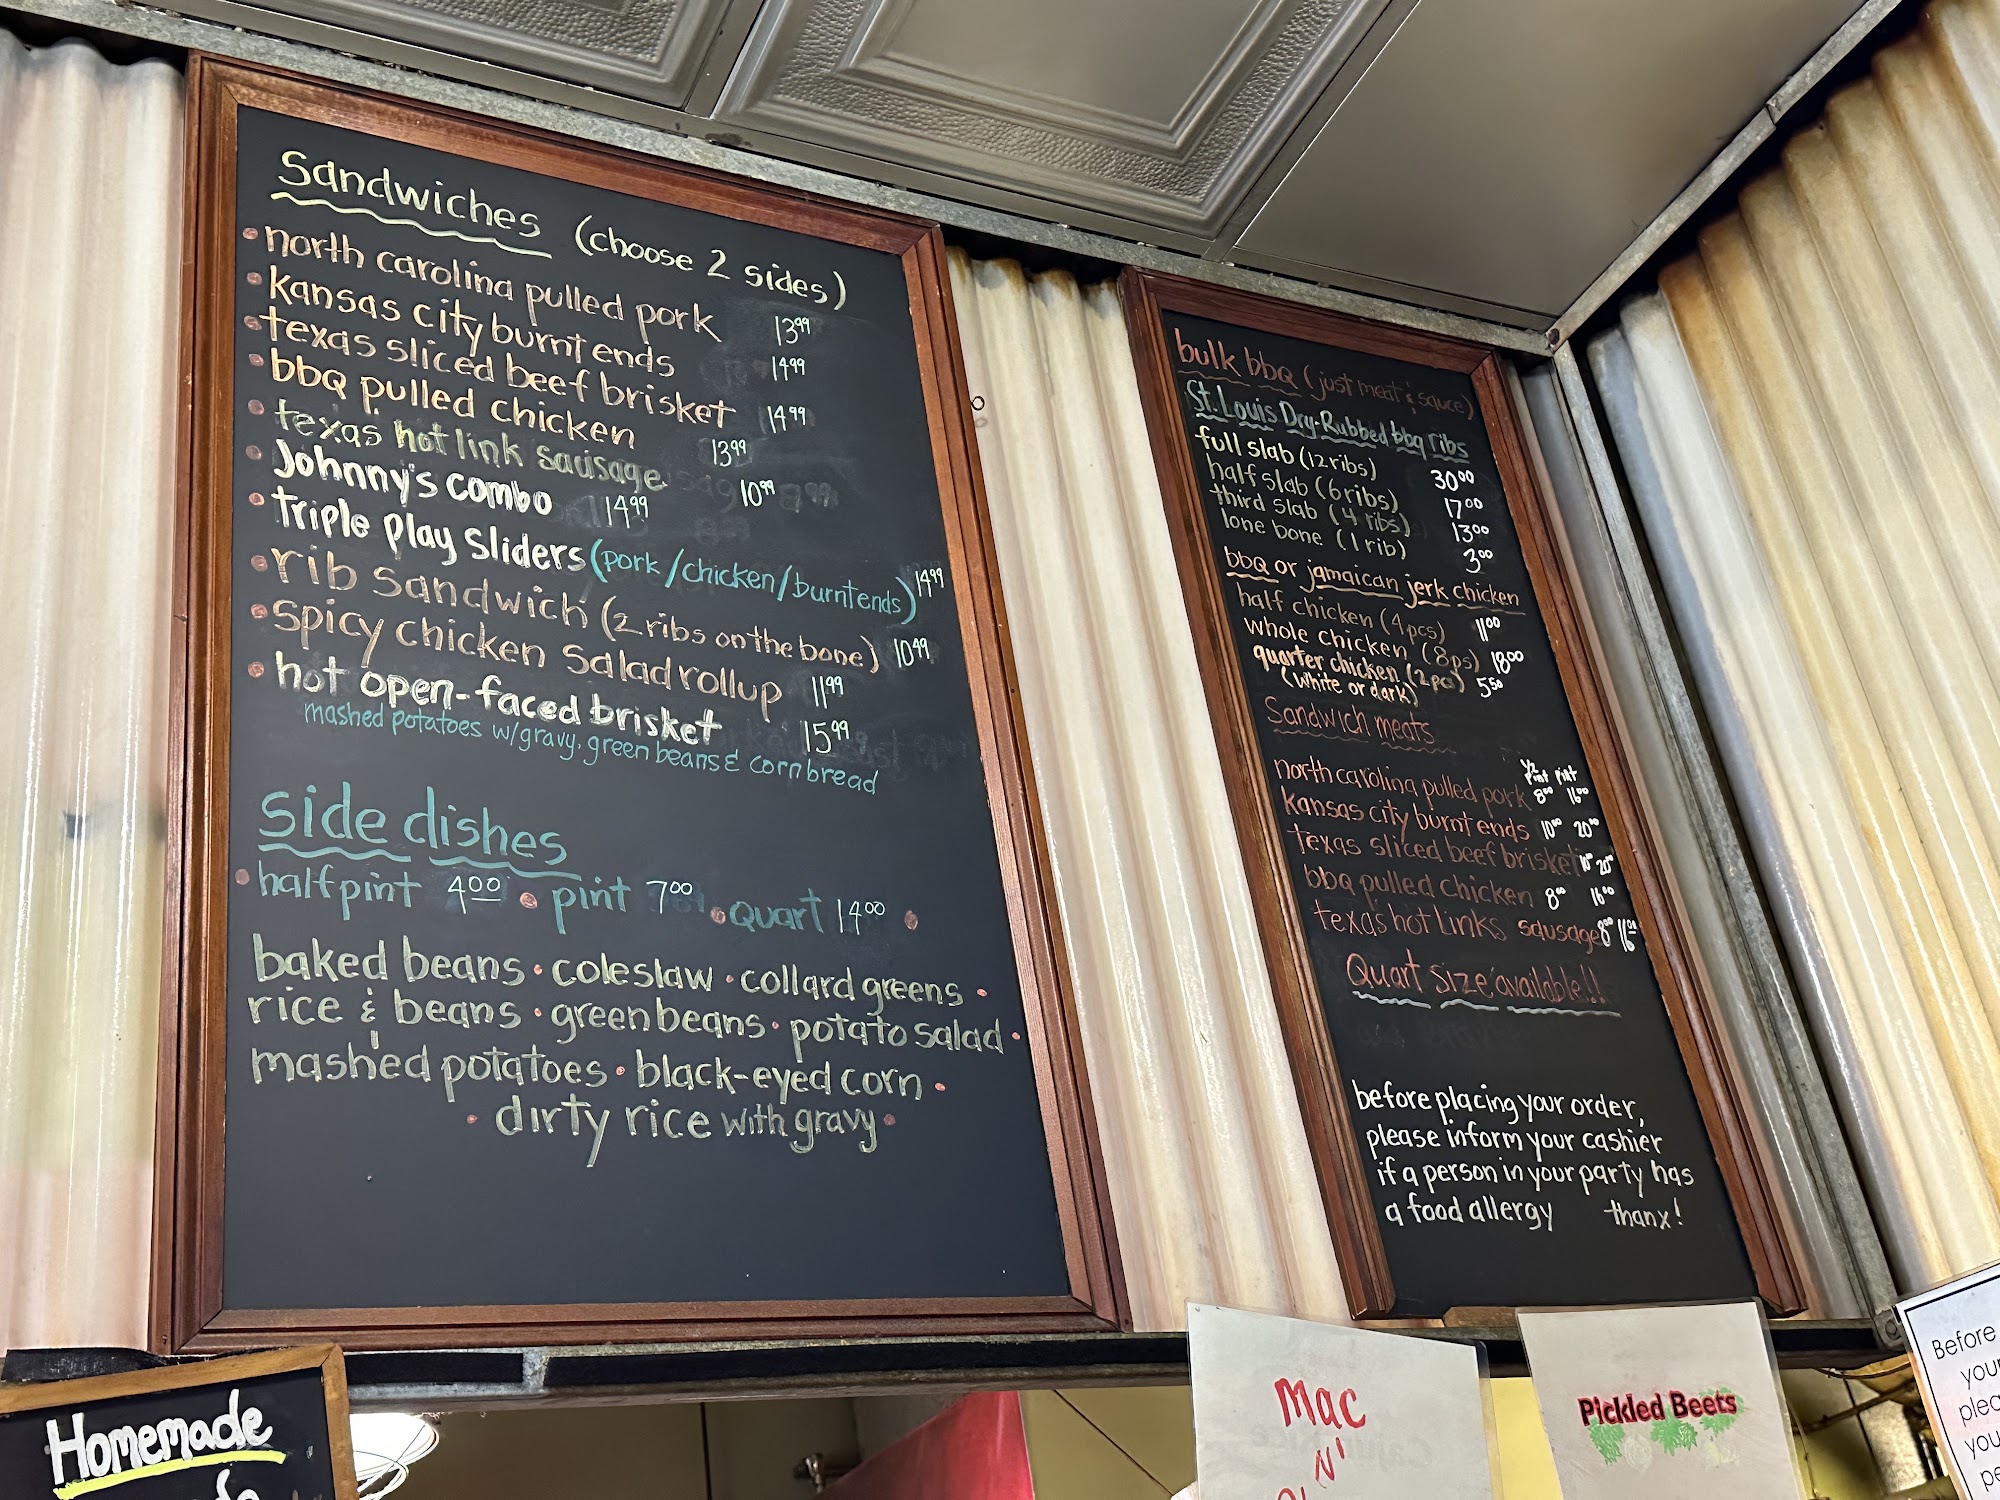 sandwiches (choose 2 sides)
• north carolina pulled pork 13⁹⁹
• kansas city burnt ends 14⁹⁹
• texas sliced beef brisket 14⁹⁹
• bbq pulled chicken 13⁹⁹
• texas hot link sausage 10⁹⁹
• Johnny's combo 14⁹⁹
• triple play sliders (pork/chicken/burnt ends) 14⁹⁹
• rib sandwich (2 ribs on the bone) 10⁴⁹
• spicy chicken salad rollup 11⁹⁹
• hot open-faced brisket 15⁹⁹
mashed potatoes w/gravy, green beans & cornbread
side dishes
• half pint 4⁰⁰ • pint 7⁰⁰ • quart 14⁰⁰ •
baked beans • coleslaw • collard greens •
rice & beans • green beans • potato salad •
mashed potatoes • black-eyed corn •
• dirty rice with gravy •
bulk bbq (just meat & sauce)
St. Louis Dry-Rubbed bbq ribs
full slab (12 ribs) 30⁰⁰
half slab (6 ribs) 17⁰⁰
third slab (4 ribs) 13⁰⁰
lone bone (1 rib) 3⁰⁰
bbq or jamaican jerk chicken
half chicken (4pcs) 11⁰⁰
whole chicken (8ps) 18⁰⁰
quarter chicken (2pcs) 5⁵⁰
(white or dark)
Sandwich meats
½ pint pint
north carolina pulled pork 8⁰⁰ 16⁰⁰
kansas city burnt ends 10⁰⁰ 20⁰⁰
texas sliced beef brisket 10⁰⁰ 20⁰⁰
bbq pulled chicken 8⁰⁰ 16⁰⁰
texas hot links sausage 8⁰⁰ 16⁰⁰
Quart size available!!
before placing your order,
please inform your cashier
if a person in your party has
a food allergy thanx!
Homemade
Mac
N'
Pickled Beets
Before